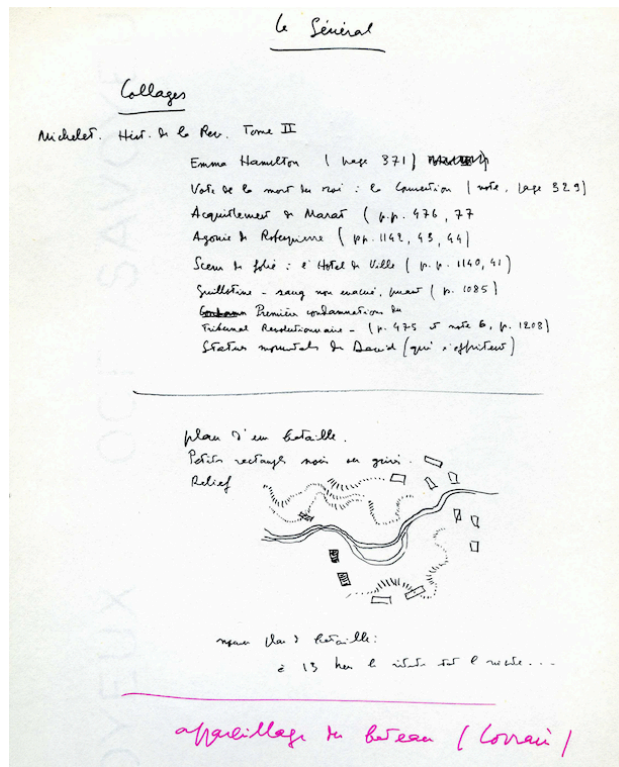 Le Général
Collages
Michelet. Hist. de la Rev. Tome II
Emma Hamilton (page 371)
Vote de la mort du roi : la Convention (note, page 329)
Acquittement de Marat (p.p. 476, 77
Agonie de Robespierre (pp. 1142, 43, 44)
Scène de folie : l'Hotel de Ville (p.p. 1140, 41)
Guillotine - sang non evacué, puant (p. 1085)
Première condamnation du
Tribunal Revolutionnaire - (p. 475 et note 6, p. 1208)
Statues monumentales de David (qui s'effritent)
plan d'une bataille.
Petits rectangles noirs ou gris.
Relief
plan de bataille:
à 13 h le reste...
appareillage du bateau (Lorrain)